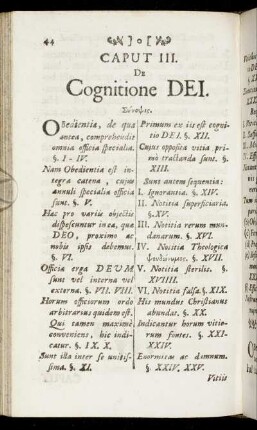 44 ❧ ] o [ ❧
CAPUT III.
DE
Cognitione DEI.
Σύνοψις.
OBedientia, de qua
antea, comprehendit
omnia officia specialia.
§. I - IV.
Nam Obedientia est in-
tegra catena, cujus
annuli specialia officia
sunt. §. V.
Hac pro variis objectis
disposcuntur inea, qua
DEO, proximo ac
nobis ipsis debemus.
§. VI.
Officia erga DEUM
sunt vel interna vel
externa. §. VII. VIII.
Horum officiorum ordo
arbitrarius quidem est,
Qui tamen maxime
conveniens, hic indi-
catur. §. IX. X.
Sunt ista inter se unitis-
sima. §. XI.
Primum ex iis est cogni-
tio DEI. §. XII.
Cujus opposita vitia pri-
mò tractanda sunt. §.
XIII.
Sunt autem sequentia:
I. Ignorantia. §. XIV.
II. Notitia superficiaria.
§. XV.
III. Notitia rerum mun-
danarum. §. XVI.
IV. Notitia Theologica
ψευδώνυμος. §. XVII.
V. Notitia sterilis. §.
XVIII.
VI. Notitia falsa. §. XIX.
His mundus Christianus
abundat. §. XX.
Indicantur horum vitio-
rum fontes. §. XXI-
XXIV.
Enormitas ac damnum.
§. XXIV. XXV.
Vitiis